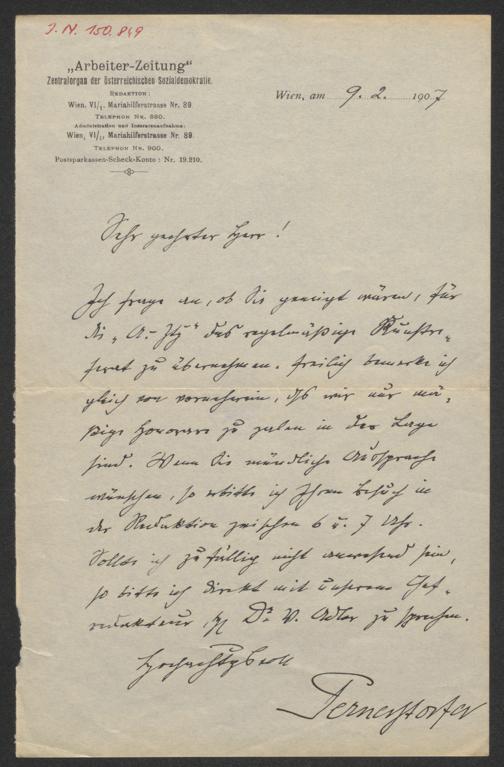 J. N. 150.849
„Arbeiter-Zeitung“
Zentralorgan der Österreichischen Sozialdemokratie.
REDAKTION:
Wien, VI/1, Mariahilferstrasse Nr. 89.
TELEPHON NR. 880.
Administration und Inseratenaufnahme:
Wien, VI/1, Mariahilferstrasse Nr. 89.
TELEPHON NR. 900.
Postsparkassen-Scheck-Konto: Nr. 19.210.
Wien, am 9. 2. 1907
Sehr geehrter Herr!
Ich frage an, ob Sie geneigt wären, für
die „A.-Ztg“ das regelmäßige Kunstre-
ferat zu übernehmen. Freilich bemerke ich
gleich von vorneherein, daß wir nur mä-
ßige Honorare zu zahlen in der Lage
sind. Wenn Sie mündliche Aussprache
wünschen, so erbitte ich Ihren Besuch in
der Redaktion zwischen 6 u. 7 Uhr.
Sollte ich zufällig nicht anwesend sein,
so bitte ich direkt mit unserem Chef-
redakteur, H Dr. V. Adler zu sprechen.
Hochachtungsvoll
Pernerstorfer